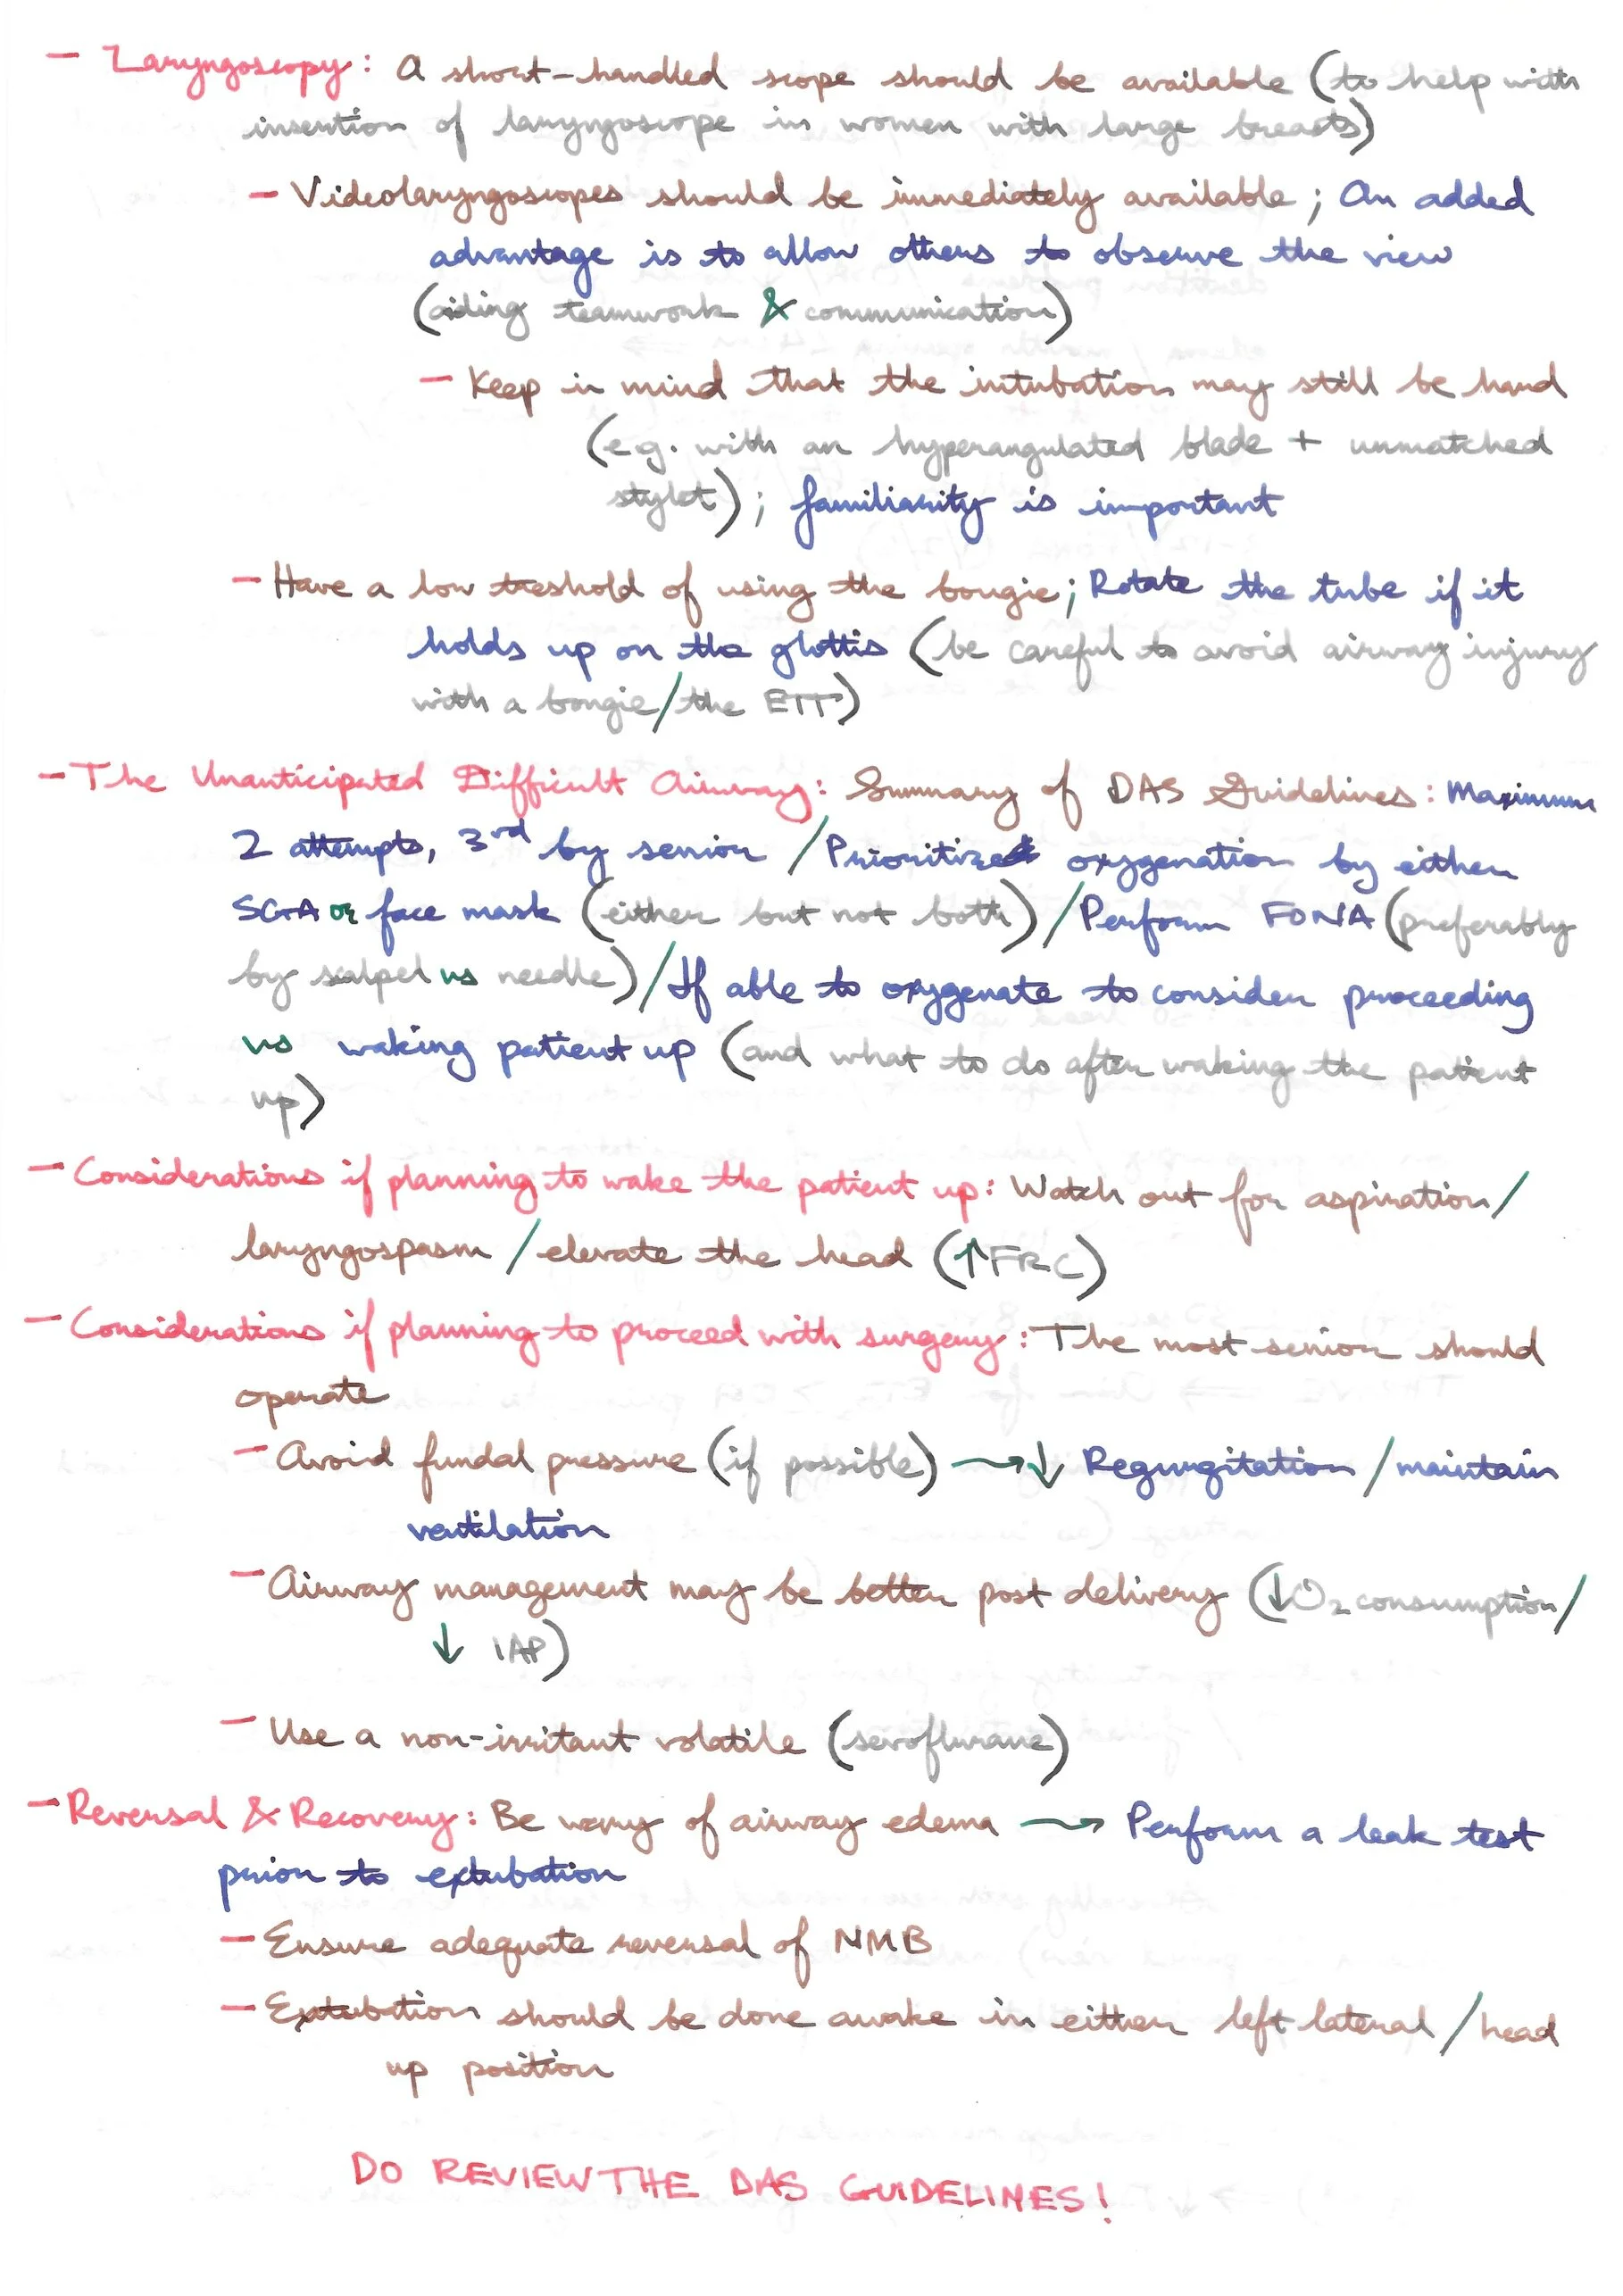 - Laryngoscopy: A short-handled scope should be available (to help with
insertion of laryngoscope in women with large breasts)
- Videolaryngoscopes should be immediately available; An added
advantage is to allow others to observe the view
(aiding teamwork & communication)
- Keep in mind that the intubation may still be hard
(e.g. with an hyperangulated blade + unmatched
stylet); familiarity is important
- Have a low treshold of using the bougie; Rotate the tube if it
holds up on the glottis (be careful to avoid airway injury
with a bougie/the ETT)
- The Unanticipated Difficult Airway: Summary of DAS Guidelines: Maximum
2 attempts, 3rd by senior / Prioritize oxygenation by either
SGA or face mask (either but not both) / Perform FONA (preferably
by scalpel vs needle) / If able to oxygenate to consider proceeding
vs waking patient up (and what to do after waking the patient
up)
- Considerations if planning to wake the patient up: Watch out for aspiration/
laryngospasm / elevate the head (↑FRC)
- Considerations if planning to proceed with surgery: The most senior should
operate
- Avoid fundal pressure (if possible) → ↓ Regurgitation / maintain
ventilation
- Airway management may be better post delivery (↓O₂ consumption/
↓ IAP)
- Use a non-irritant volatile (sevoflurane)
- Reversal & Recovery: Be wary of airway edema → Perform a leak test
prior to extubation
- Ensure adequate reversal of NMB
- Extubation should be done awake in either left lateral / head
up position
DO REVIEW THE DAS GUIDELINES!